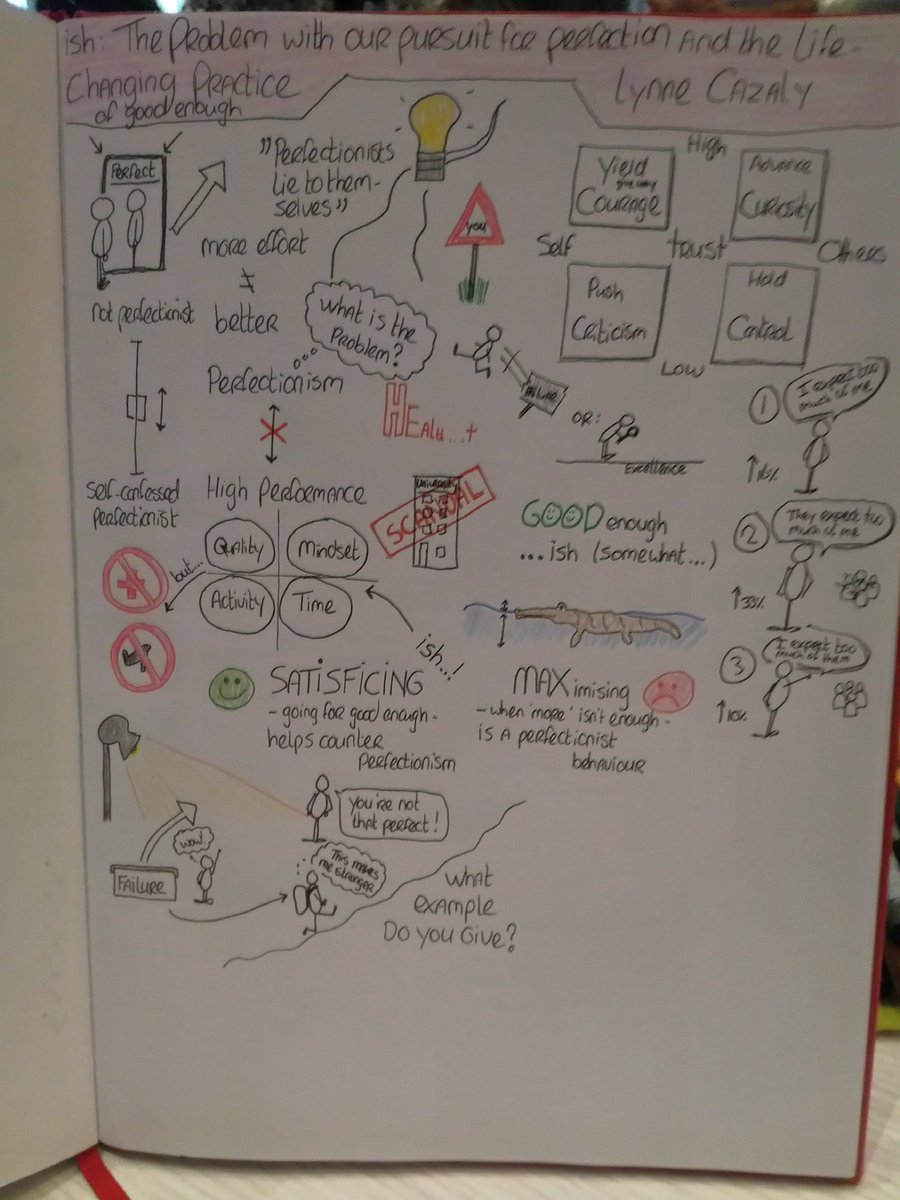 ish: The Problem with our pursuit for perfection and the Life-
Changing Practice
of good enough
Lynne Cazaly
Perfect
"Perfectionists
lie to them-
selves"
more effort
≠
better
not perfectionist
self-confessed
perfectionist
What is the
Problem?
Perfectionism
High Performance
you
Quality
Mindset
Activity
Time
but...
ish...!
SCANDAL
High
Yield
give way
Courage
Advance
Curiosity
Self
trust
Others
Push
Criticism
Hold
Control
Low
OR:
Excellence
GOOD enough
...ish (somewhat...)
1
I expect too
much of me
↑16%
2
They expect too
much of me
↑33%
3
I expect too
much of them
↑10%
SATISFICING
- going for good enough -
helps counter
Perfectionism
MAXimising
- when 'more' isn't enough -
is a perfectionist
behaviour
you're not
that perfect!
wow!
Failure
This makes
me stronger
What
example
Do you Give?